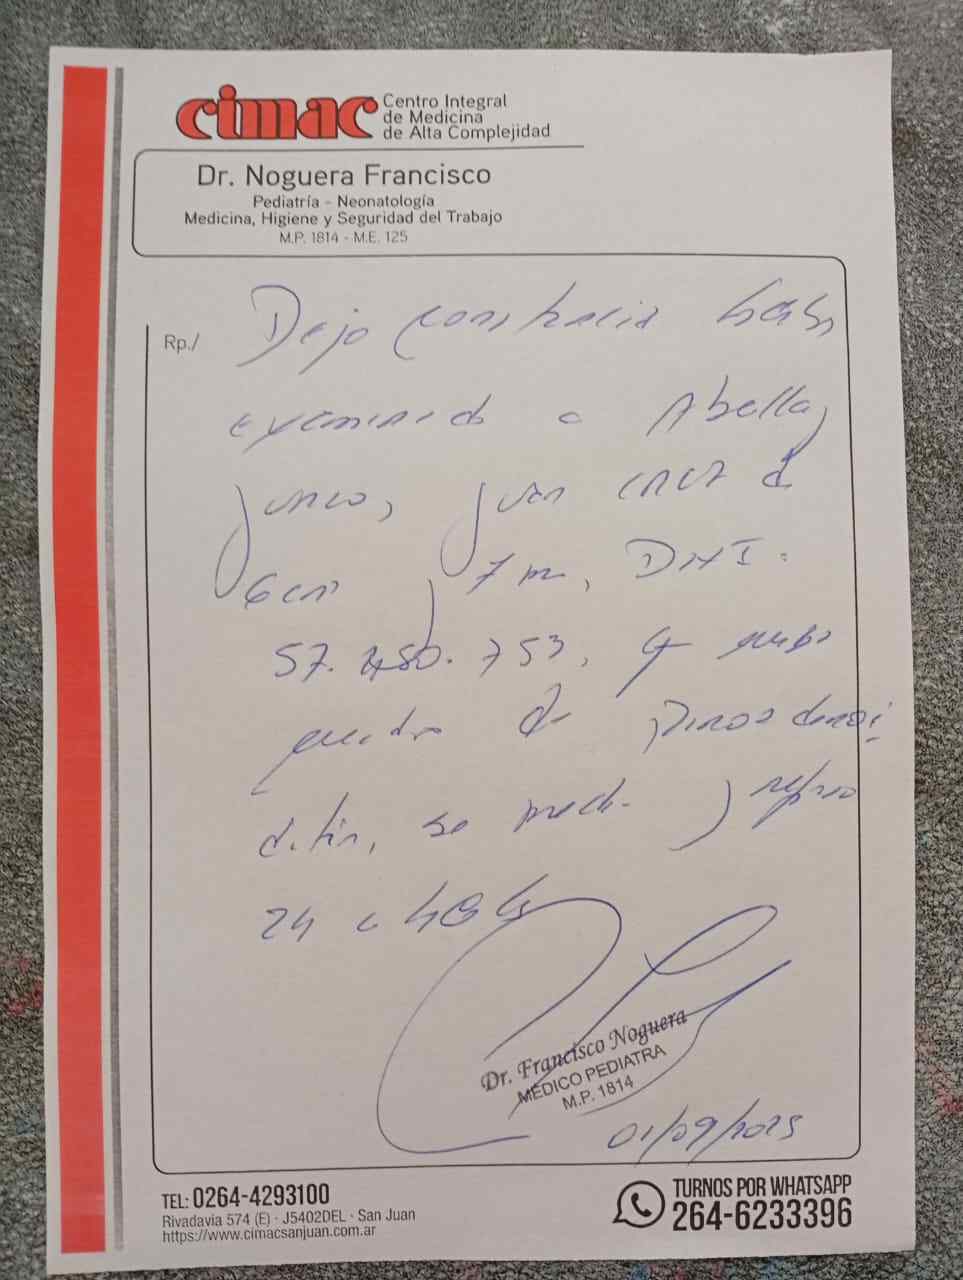 cimac
Centro Integral
de Medicina
de Alta Complejidad
Dr. Noguera Francisco
Pediatría - Neonatología
Medicina, Higiene y Seguridad del Trabajo
M.P. 1814 - M.E. 125
Rp./
Dejo constancia haber
examinado a Abella,
Junco, Juan Cruz de
6 7 m, DNI.
57. 753, q
cuadro de
se y reposo
24 a 48 hs
Dr. Francisco Noguera
MÉDICO PEDIATRA
M.P. 1814
01/09/2025
TEL: 0264-4293100
Rivadavia 574 (E) · J5402DEL · San Juan
https://www.cimacsanjuan.com.ar
TURNOS POR WHATSAPP
264-6233396